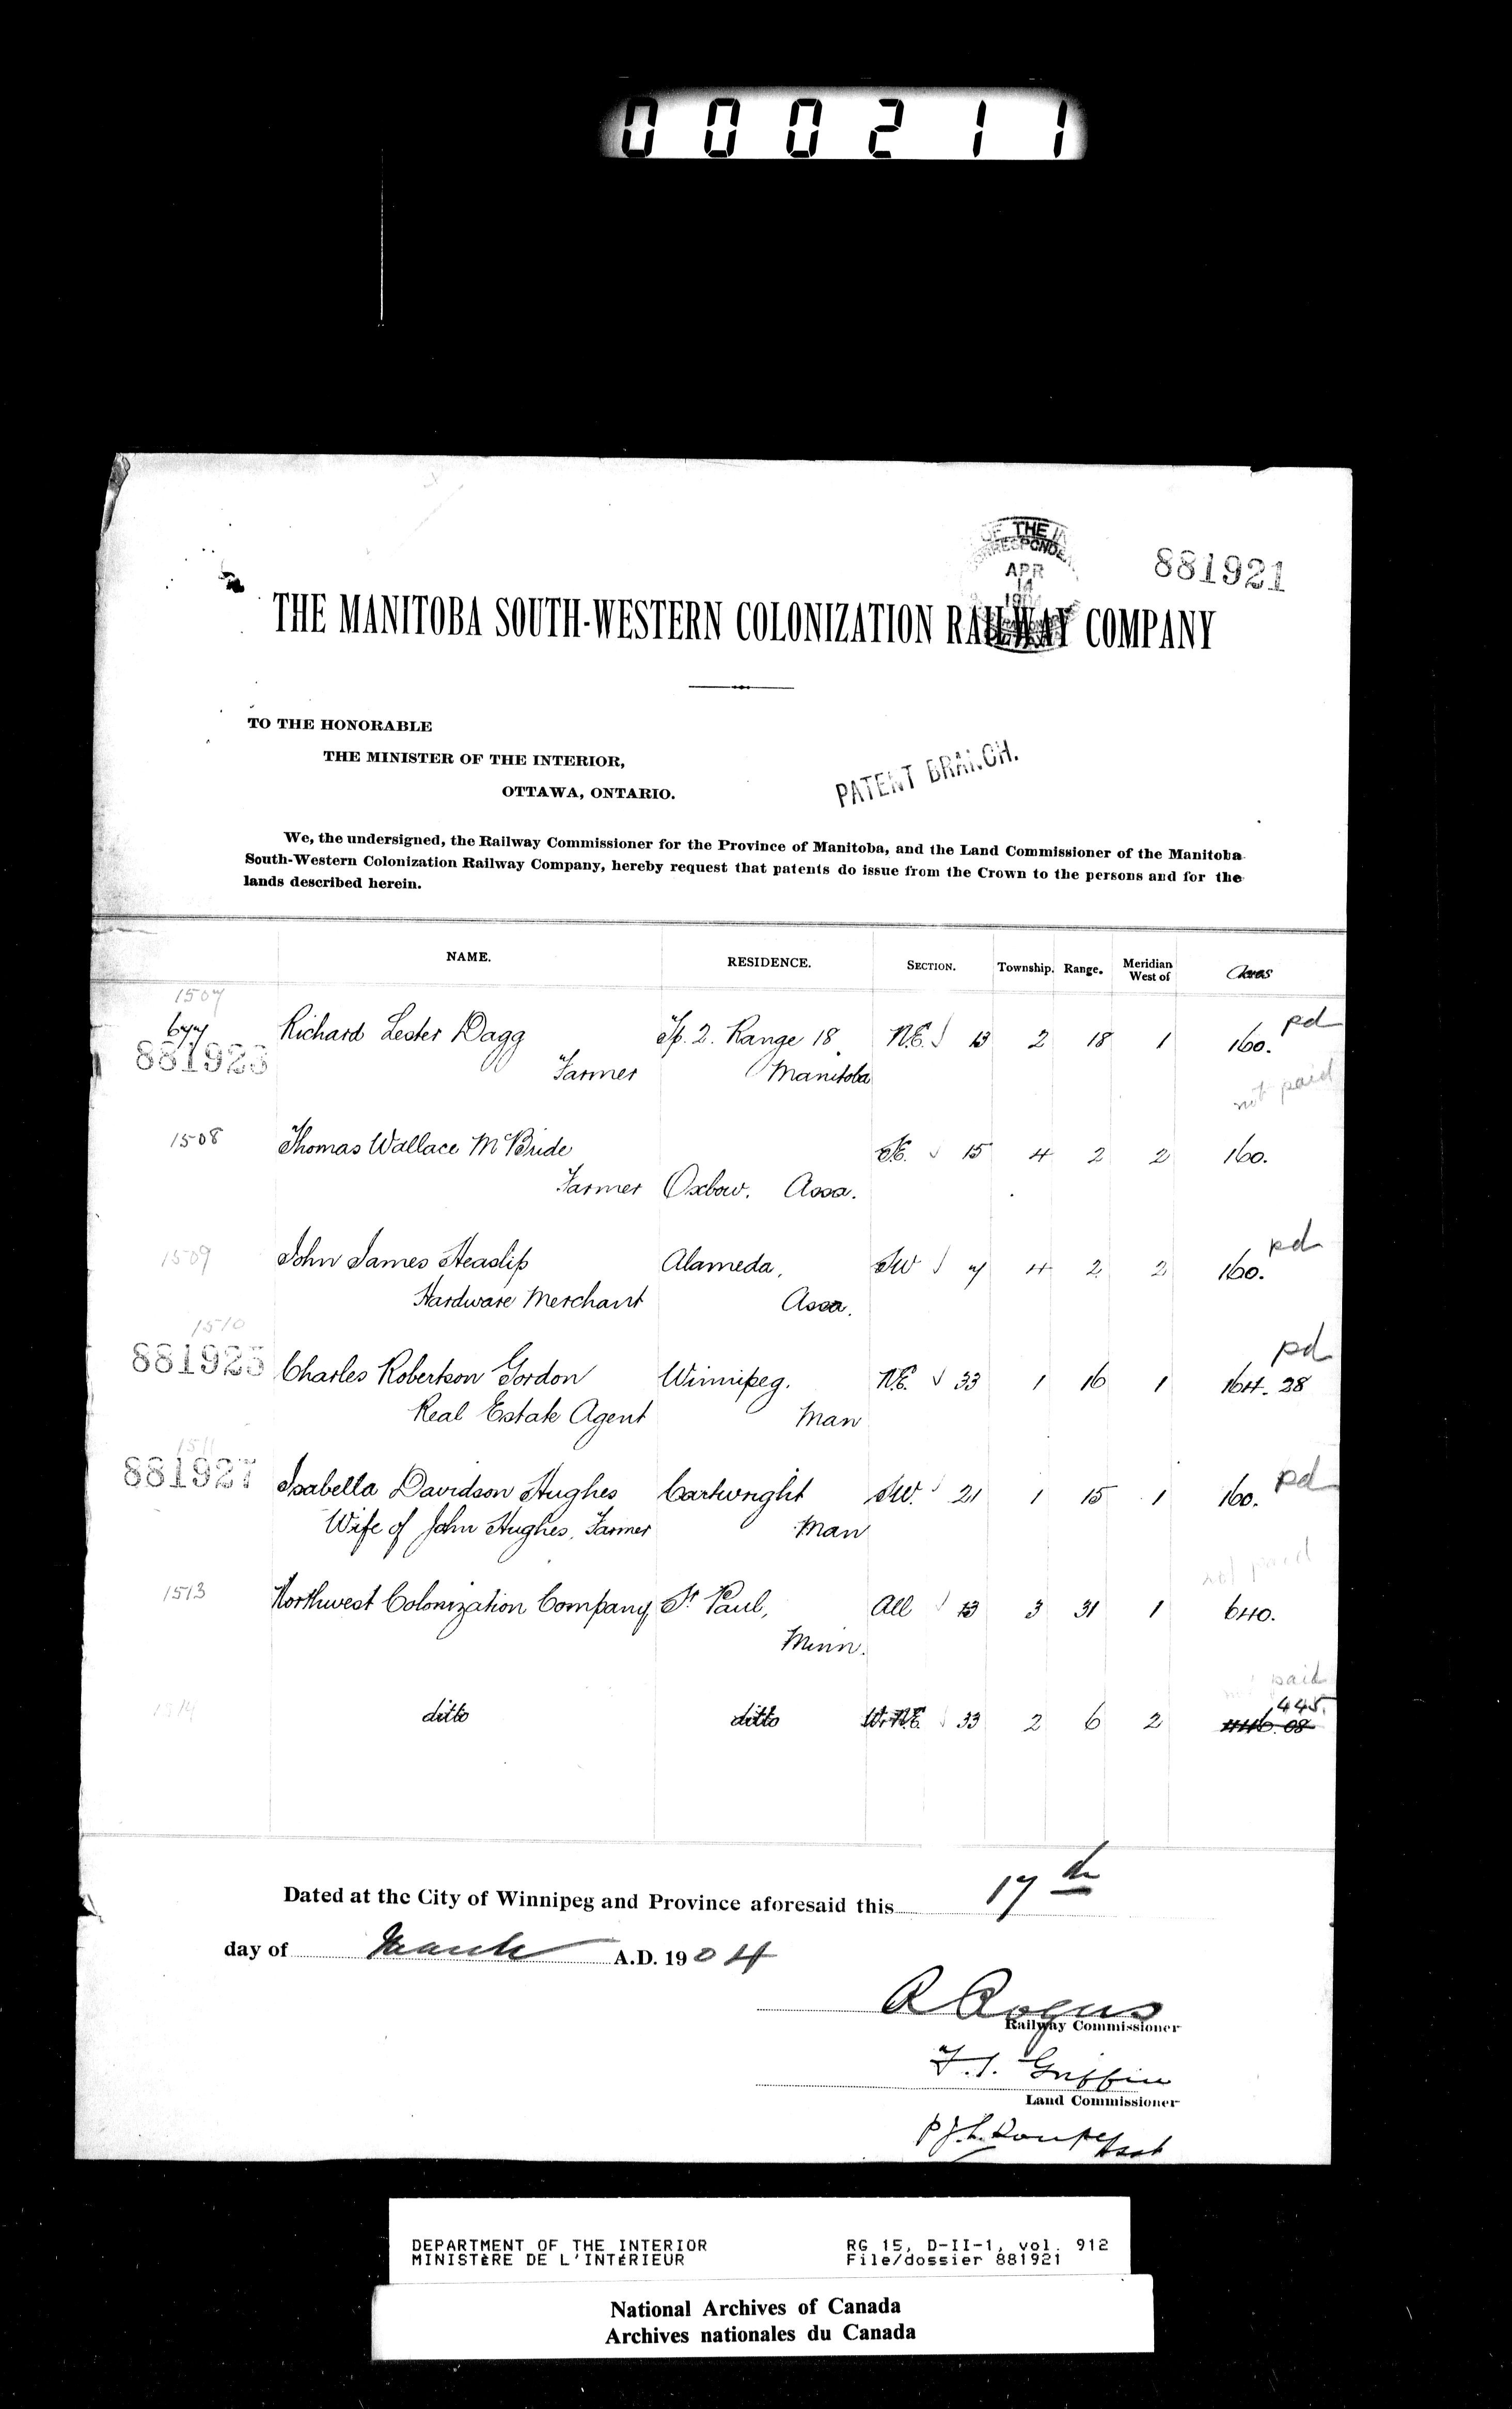 000211
881921
OF THE IN
CORRESPONDE
APR
14
THE MANITOBA SOUTH-WESTERN COLONIZATION RAILWAY COMPANY
TO THE HONORABLE
THE MINISTER OF THE INTERIOR,
OTTAWA, ONTARIO.
PATENT BRANCH.
We, the undersigned, the Railway Commissioner for the Province of Manitoba, and the Land Commissioner of the Manitoba
South-Western Colonization Railway Company, hereby request that patents do issue from the Crown to the persons and for the
lands described herein.
NAME. RESIDENCE. SECTION. Township. Range. Meridian West of Acres
1507
677 Richard Lester Dagg Tp. 2. Range 18 N.E. 13 2 18 1 160. pd
881923 Farmer Manitoba
not paid
1508 Thomas Wallace McBride 15 4 2 2 160.
Farmer Oxbow. Assa.
1509 John James Heaslip Alameda, SW 7 4 2 2 160. pd
Hardware Merchant Assa.
1510
881925 Charles Robertson Gordon Winnipeg. N.E. 33 1 16 1 164.28 pd
Real Estate Agent Man
1511
881927 Isabella Davidson Hughes Cartwright S.W. 21 1 15 1 160. pd
Wife of John Hughes, Farmer Man
not paid
1513 Northwest Colonization Company St Paul, All 13 3 31 1 640.
Minn.
not paid
445.
1514 ditto ditto 33 2 6 2 446.08
Dated at the City of Winnipeg and Province aforesaid this 17th
day of March A.D. 1904
R Rogers
Railway Commissioner
F.T. Griffin
Land Commissioner
Asst
DEPARTMENT OF THE INTERIOR RG 15, D-II-1, vol. 912
MINISTÈRE DE L'INTÉRIEUR File/dossier 881921
National Archives of Canada
Archives nationales du Canada